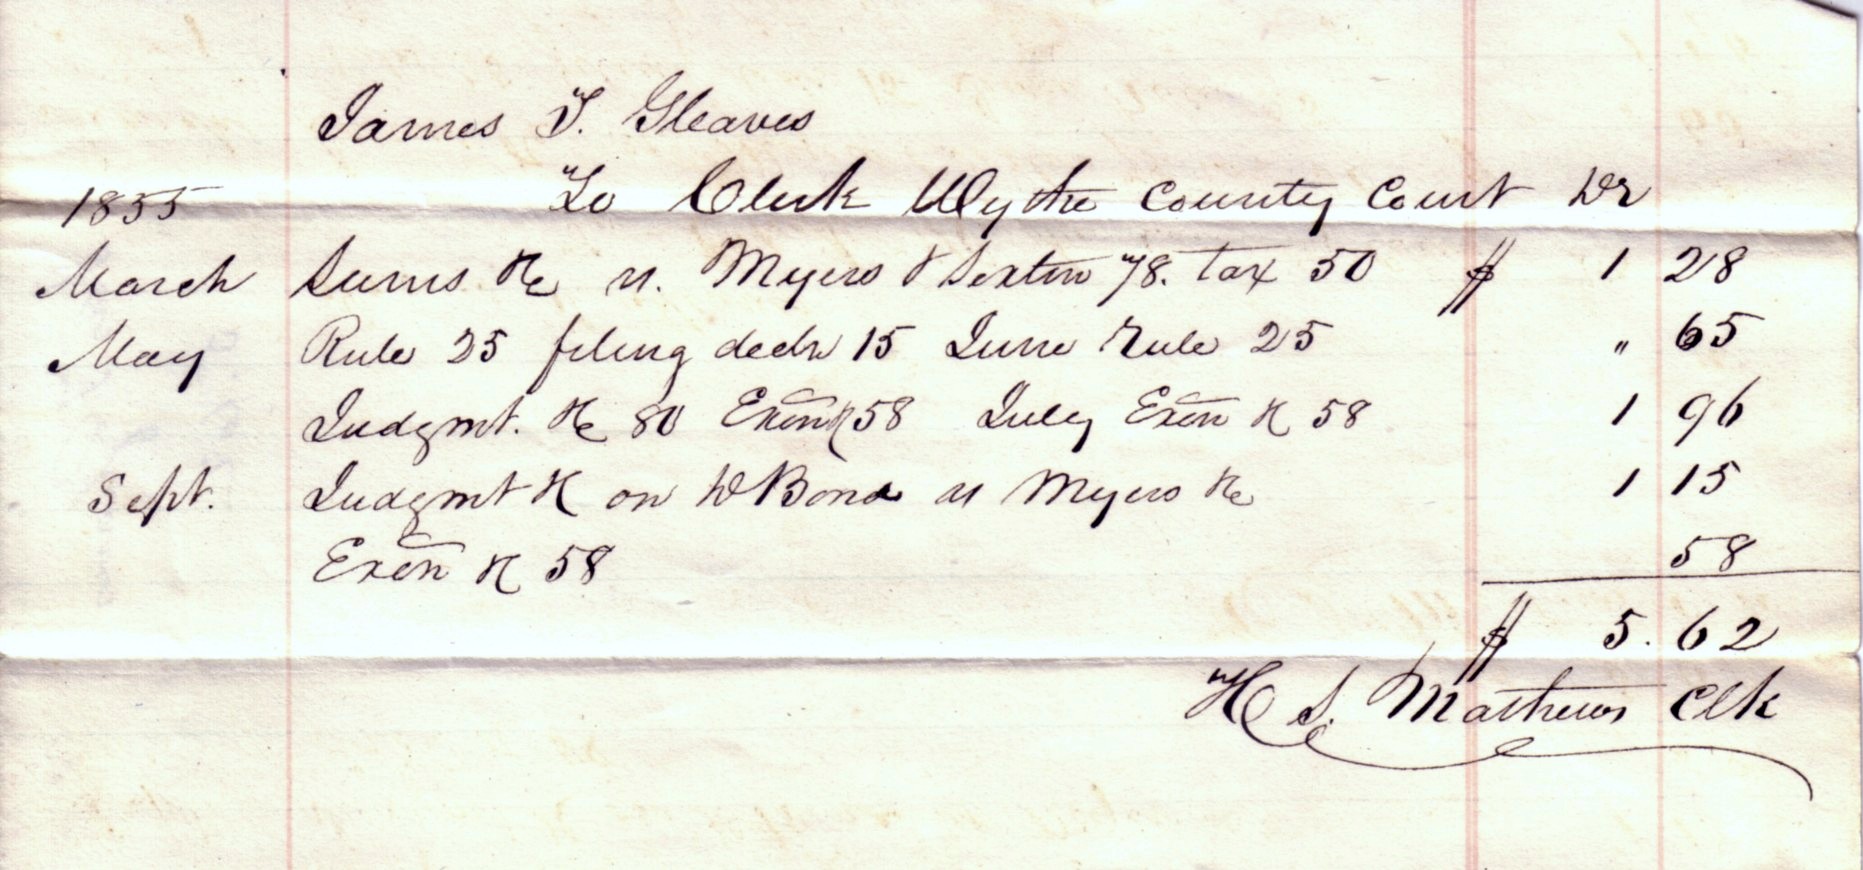 James T. Gleaves
1855 To Clerk Wythe County Court Dr
March Sums &c vs. Myers & Sexton 78. Tax 50 $ 1 28
May Rule 25 filing decln 15 June Rule 25 " 65
Judgmt. &c 80 Exōn &c 58 July Exōn &c 58 1 96
Sept. Judgmt &c on D Bond vs Myers &c 1 15
Exōn &c 58 58
$ 5.62
H S. Mathews Clk